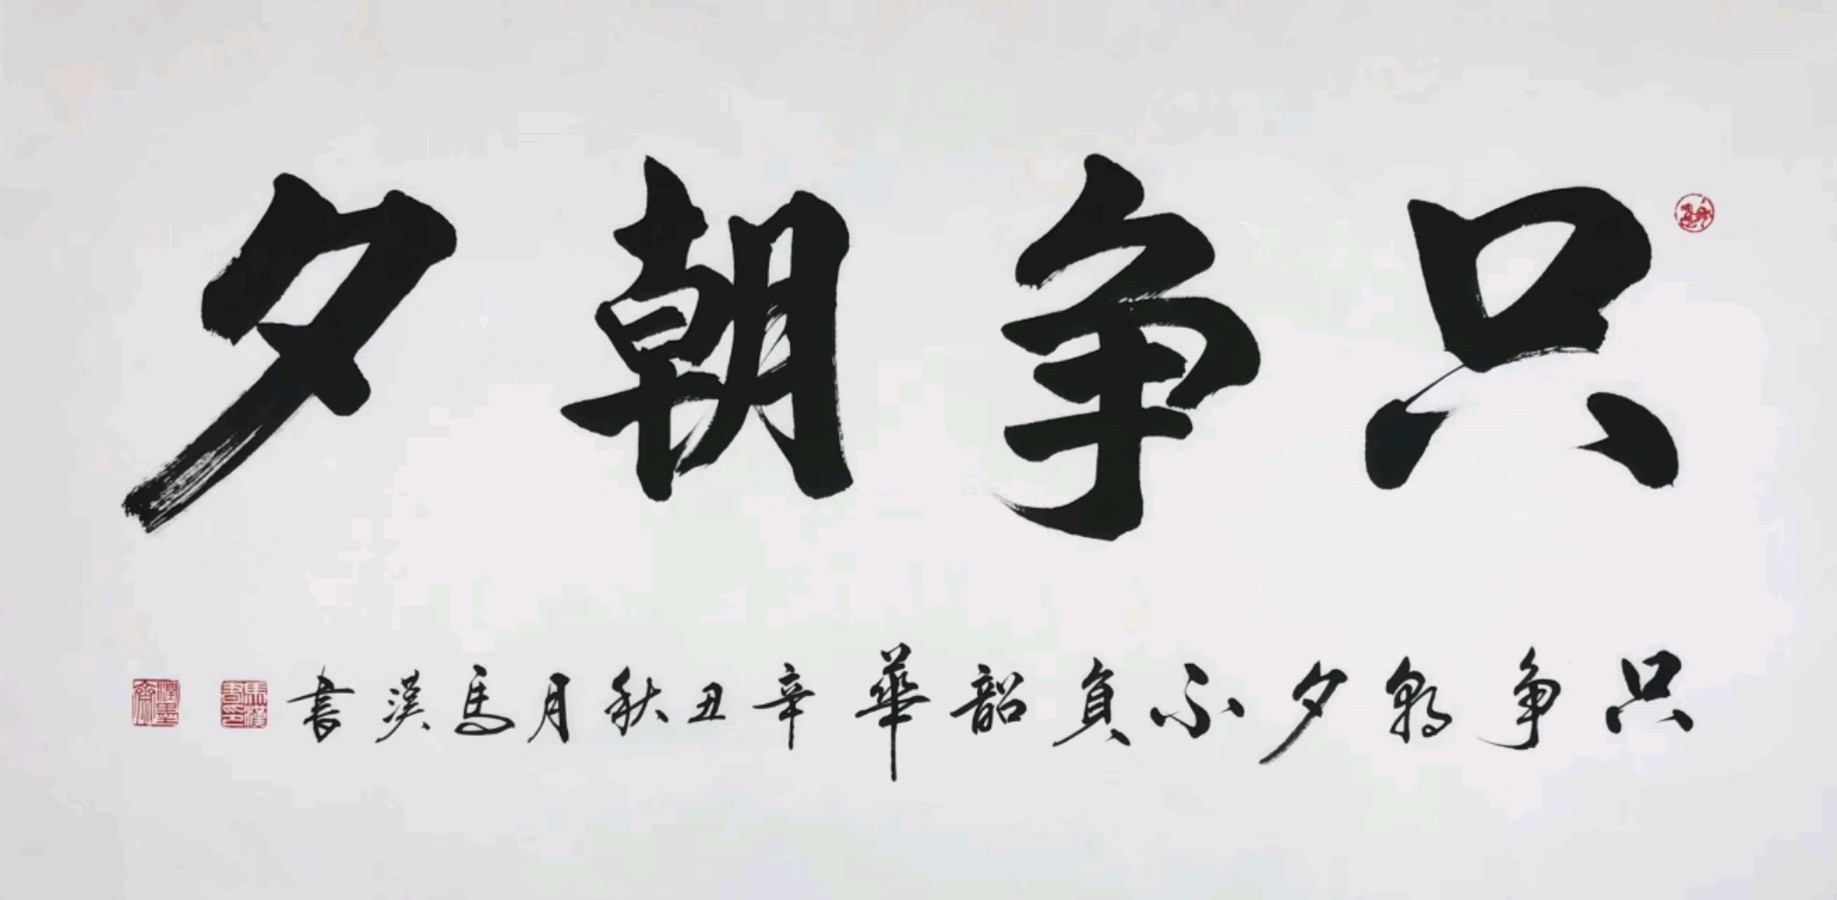 只争朝夕
只争朝夕不负韶華辛丑秋月馬漢書